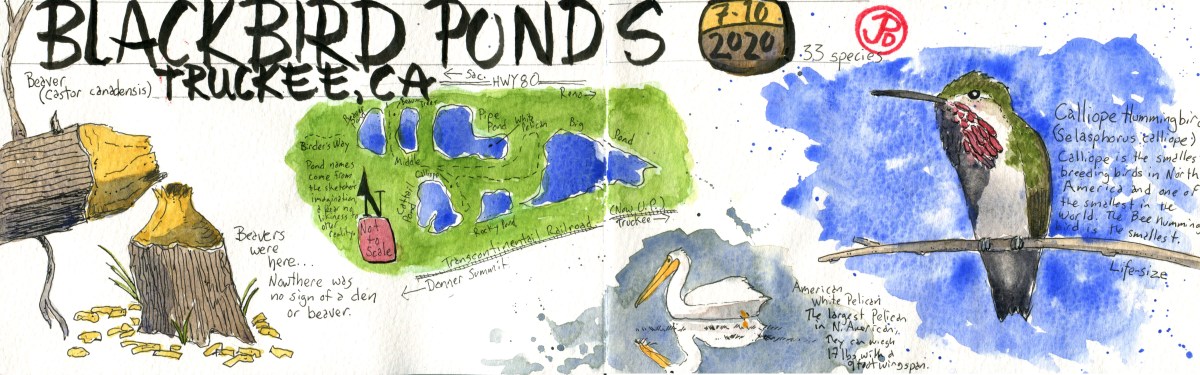 BLACKBIRD PONDS
TRUCKEE, CA
7-10
2020
JPD
33 species
Beaver
(Castor canadensis)
← Saci. HWY 80
Reno →
Pipe
Pond
White
Pelican
Big
Pond
Birder's Way
Middle
Calliope
Cattail
Pond
Rocky Pond
Pond names
come from
the sketcher
imagination
& bear no
likiness to
other
reality.
N
Not
to
Scale
Transcontinental Railroad
(Now U.P.)
Truckee →
← Donner Summit
Beavers
were
here...
Nowthere was
no sign of a den
or beaver.
American
White Pelican
The largest Pelican
in N. American,
They can weigh
17 lbs with a
9 foot wingspan.
Calliope Hummingbird
(Selasphorus calliope)
Calliope is the smallest
breeding birds in North
America and one of
the smallest in the
world. The Bee Humming
bird is the smallest.
Life-size